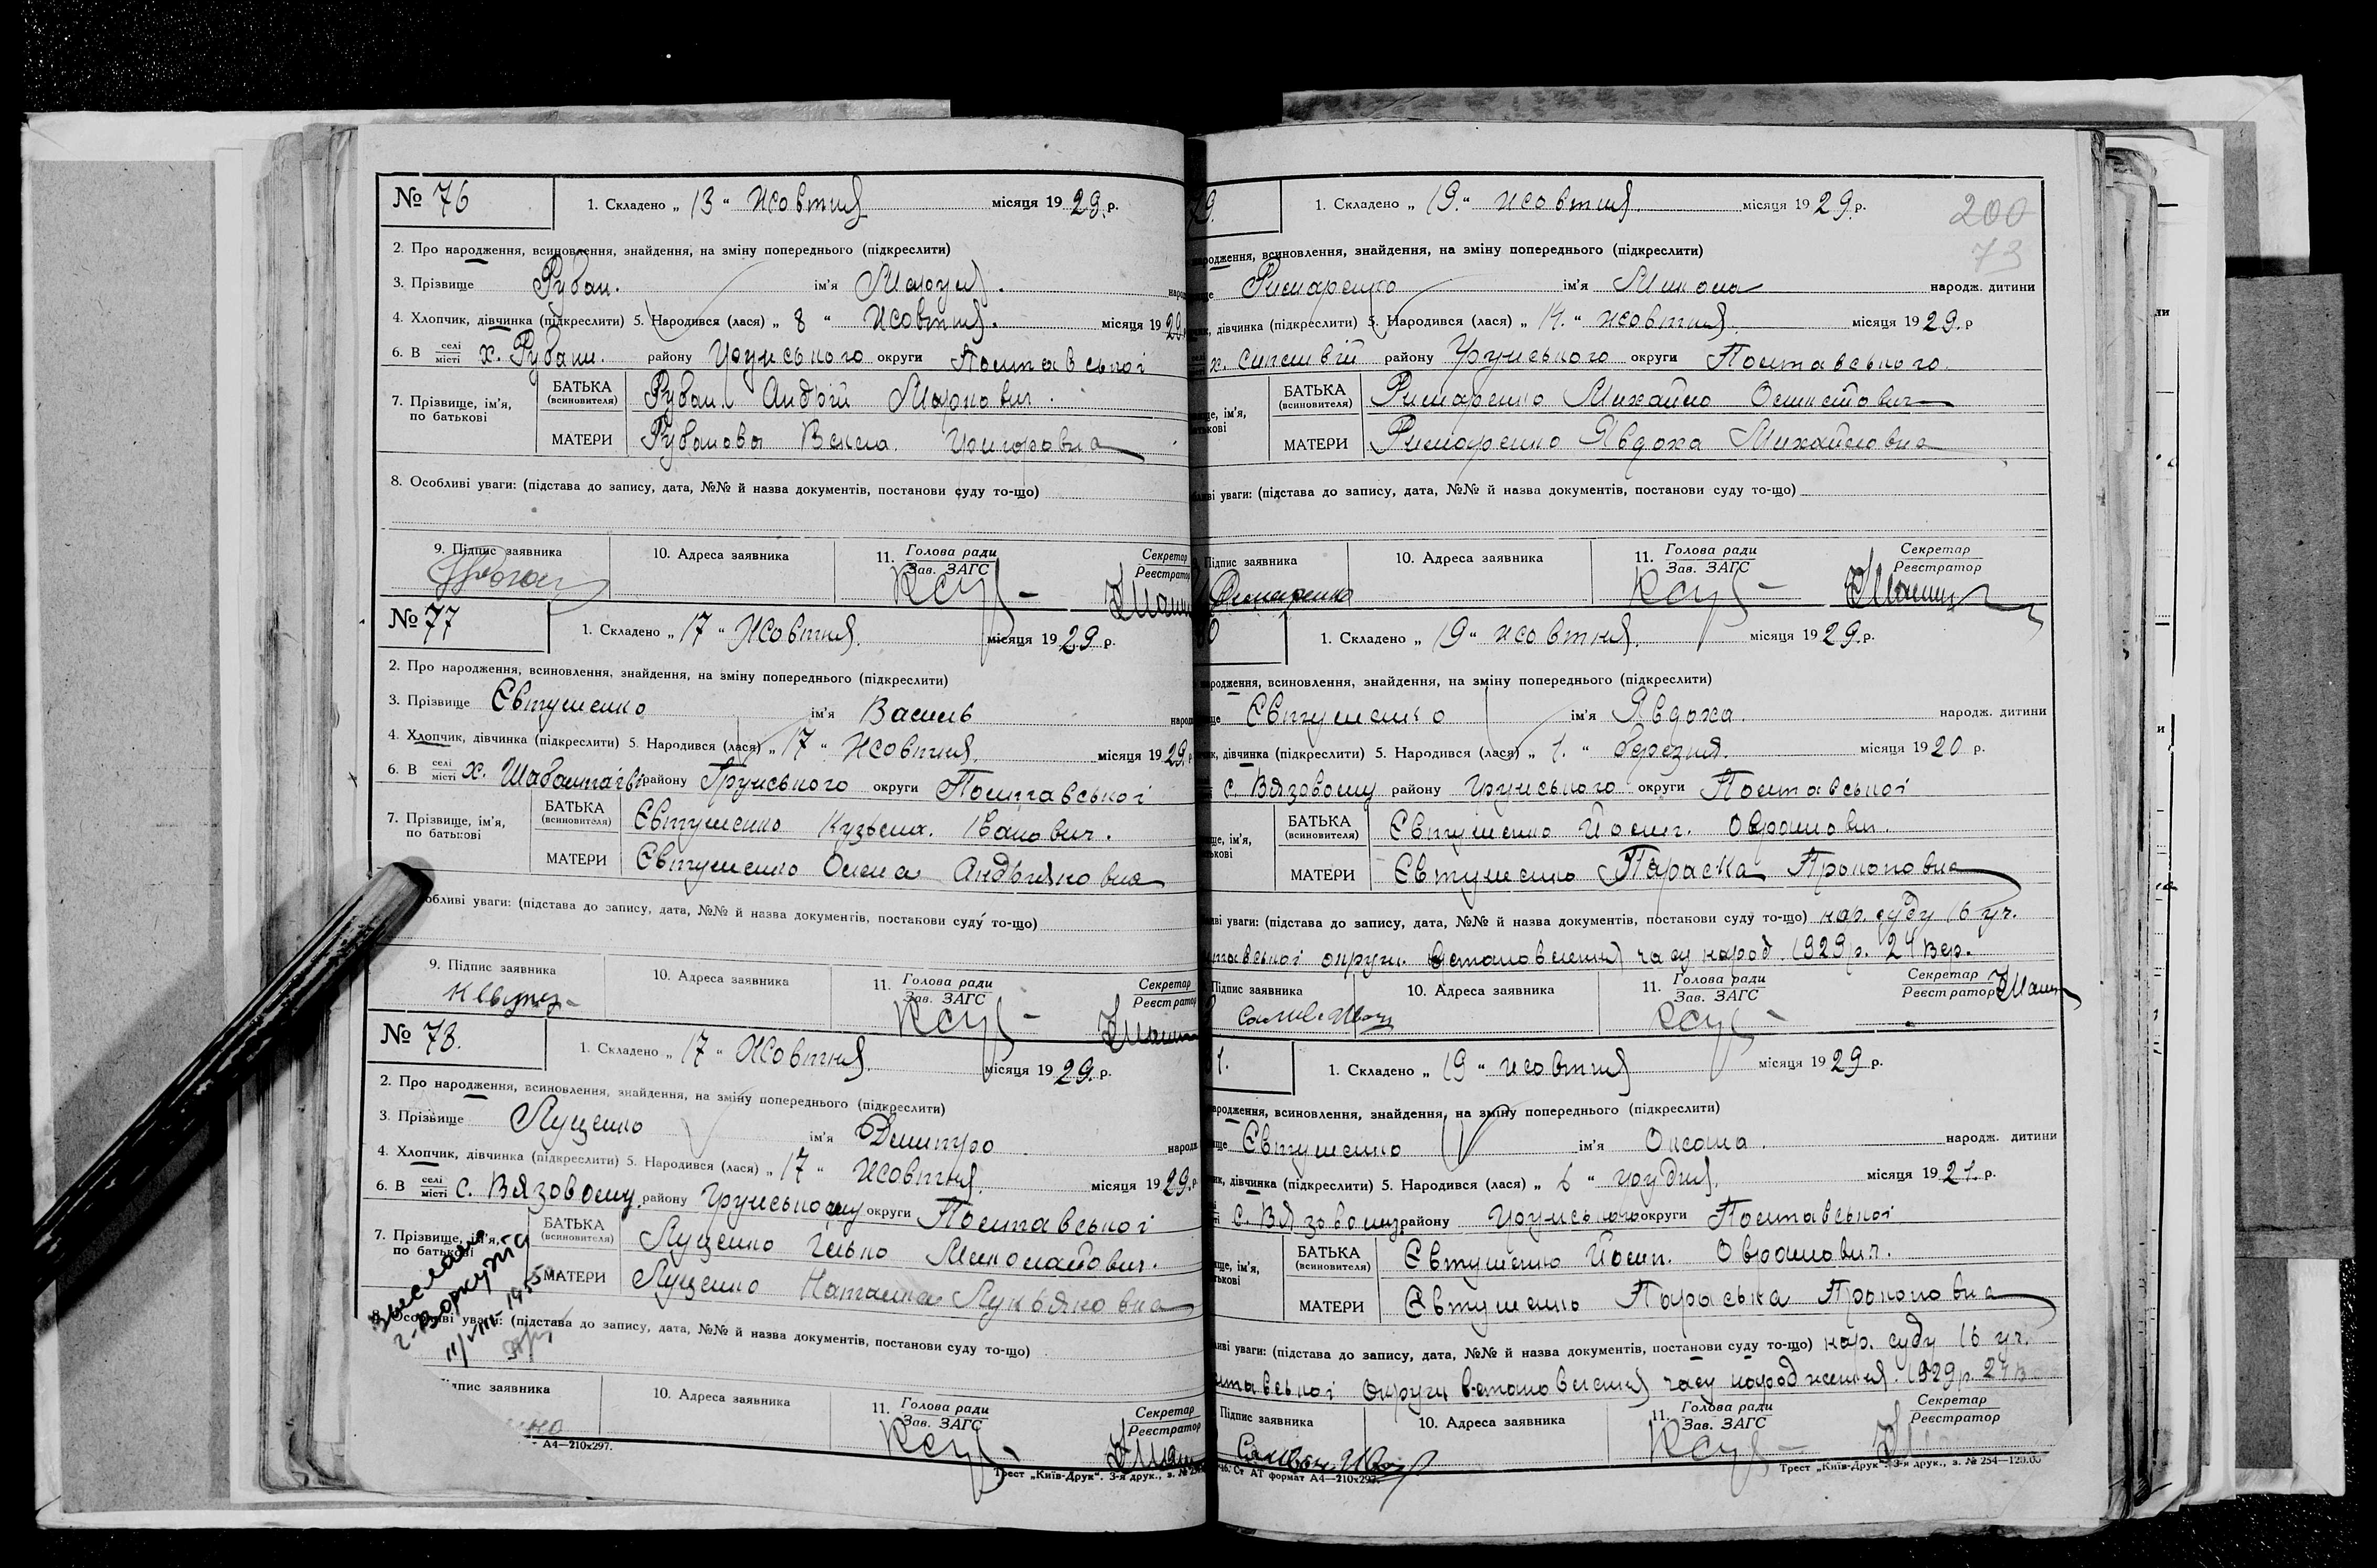 № 76
1. Складено „ 13 “ Жовтня місяця 19 29. р.
2. Про народження, всиновлення, знайдення, на зміну попереднього (підкреслити)
3. Прізвище Рубан. ім'я
4. Хлопчик, дівчинка (підкреслити) 5. Народився (лася) „ 8 “ Жовтня. місяця 19 29. р
6. В селі/місті х. Рубани. району Грунського округи Полтавської
7. Прізвище, ім'я, по батькові
БАТЬКА (всиновителя) Рубан Андрій Маркович.
МАТЕРИ Рубанова Векла. Григоровна
8. Особливі уваги: (підстава до запису, дата, №№ й назва документів, постанови суду то-що)
9. Підпис заявника 10. Адреса заявника 11. Голова ради/Зав. ЗАГС Секретар/Реєстратор
№ 77
1. Складено „ 17 “ Жовтня. місяця 19 29. р.
2. Про народження, всиновлення, знайдення, на зміну попереднього (підкреслити)
3. Прізвище Євтушенко ім'я Василь
4. Хлопчик, дівчинка (підкреслити) 5. Народився (лася) „ 17 “ Жовтня. місяця 19 29. р
6. В селі/місті х. району Грунського округи Полтавської
7. Прізвище, ім'я, по батькові
БАТЬКА (всиновителя) Євтушенко Кузьма. Іванович.
МАТЕРИ Євтушенко Олена Андріяновна
обливі уваги: (підстава до запису, дата, №№ й назва документів, постанови суду то-що)
9. Підпис заявника 10. Адреса заявника 11. Голова ради/Зав. ЗАГС Секретар/Реєстратор
№ 78.
1. Складено „ 17 “ Жовтня. місяця 19 29. р.
2. Про народження, всиновлення, знайдення, на зміну попереднього (підкреслити)
3. Прізвище Луценко ім'я Дмитро
4. Хлопчик, дівчинка (підкреслити) 5. Народився (лася) „ 17 “ Жовтня. місяця 19 29. р
6. В селі/місті с. Вязовому. району Грунському округи Полтавської
7. Прізвище, ім'я, по батькові
БАТЬКА (всиновителя) Луценко Ілько
МАТЕРИ Луценко Наталка Лукьяновна
выслано
г. Воркута
11/VIII-1955
8. Особливі уваги: (підстава до запису, дата, №№ й назва документів, постанови суду то-що)
ідпис заявника 10. Адреса заявника 11. Голова ради/Зав. ЗАГС Секретар/Реєстратор
А4—210х297.
Трест „Київ-Друк“. 3-я друк., з. №
79.
1. Складено „ 19. “ жовтня. місяця 19 29. р.
200
73
народження, всиновлення, знайдення, на зміну попереднього (підкреслити)
Римаренко ім'я Микола народж. дитини
дівчинка (підкреслити) 5. Народився (лася) „ 14. “ жовтня. місяця 19 29. р
х. району Грунського округи Полтавського.
БАТЬКА (всиновителя) Римаренко Михайло
МАТЕРИ Римаренко Явдоха Михайловна
уваги: (підстава до запису, дата, №№ й назва документів, постанови суду то-що)
Підпис заявника 10. Адреса заявника 11. Голова ради/Зав. ЗАГС Секретар/Реєстратор
Римаренко
80
1. Складено „ 19 “ жовтня. місяця 19 29. р.
народження, всиновлення, знайдення, на зміну попереднього (підкреслити)
Євтушенко ім'я Явдоха. народж. дитини
дівчинка (підкреслити) 5. Народився (лася) „ 1. “ березня. місяця 19 20 р.
с. Вязовому району Грунського округи Полтавської
БАТЬКА (всиновителя) Євтушенко Йосип. Оврамович.
МАТЕРИ Євтушенко Параска Прокоповна
уваги: (підстава до запису, дата, №№ й назва документів, постанови суду то-що) нар. суду 16 уч.
тавської округи. Встановлення часу народ. 1929 р. 24 Вер.
Підпис заявника 10. Адреса заявника 11. Голова ради/Зав. ЗАГС Секретар/Реєстратор
81.
1. Складено „ 19 “ жовтня місяця 19 29 р.
народження, всиновлення, знайдення, на зміну попереднього (підкреслити)
Євтушенко ім'я Оксана. народж. дитини
дівчинка (підкреслити) 5. Народився (лася) „ 6 “ грудня. місяця 19 21. р.
с. Вязовому району Грунського округи Полтавської
БАТЬКА (всиновителя) Євтушенко Йосип. Оврамович.
МАТЕРИ Євтушенко Параська Прокоповна
уваги: (підстава до запису, дата, №№ й назва документів, постанови суду то-що) нар. суду 16 уч.
тавської округи встановлення часу народження. 1929 р. 24
Підпис заявника 10. Адреса заявника 11. Голова ради/Зав. ЗАГС Секретар/Реєстратор
Ст АТ формат А4—210х297.
Трест „Київ-Друк“. 3-я друк., з. № 254—120.00